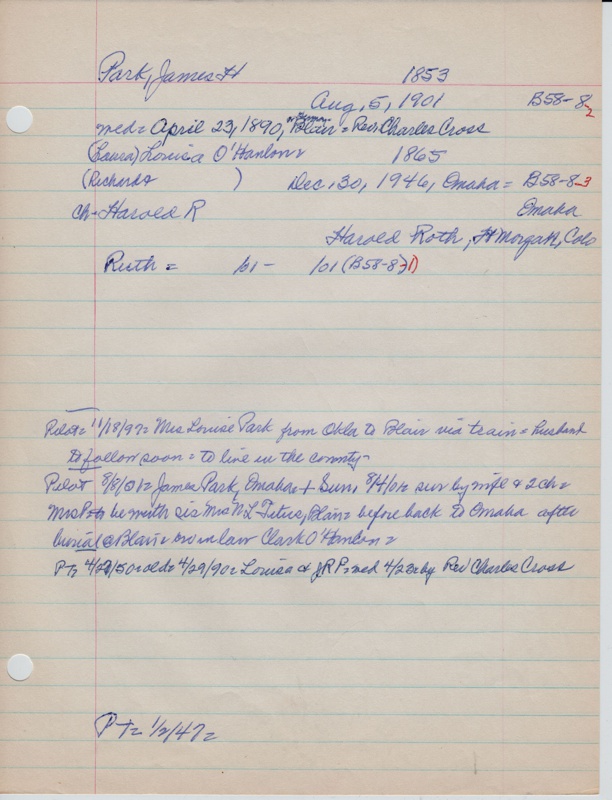 Park, James H 1853
Aug, 5, 1901 B58-8-2
med = April 23, 1890, Blair = Rev. Charles Cross
(Laura) Louisa O'Hanlon = 1865
(Richards ) Dec. 30, 1946, Omaha = B58-8-3
ch - Harold R Omaha
Harold Roth, Ft Morgan, Colo
Ruth = /01 - /01 (B58-8-1)
Pilot = 11/18/97 = Mrs Louise Park from Okla to Blair via train = husband
to follow soon = to live in the county
Pilot 8/8/01 = James Park, Omaha + Sun, 8/4/01 = sur by wife & 2 ch =
Mrs P to be with sis Mrs N L Titus, Blair = before back to Omaha after
burial @ Blair = bro in law Clark O'Hanlon =
PT = 4/29/50 old = 4/29/90 = Louisa & J R P = med 4/23 by Rev Charles Cross
PT = 1/2/47 =